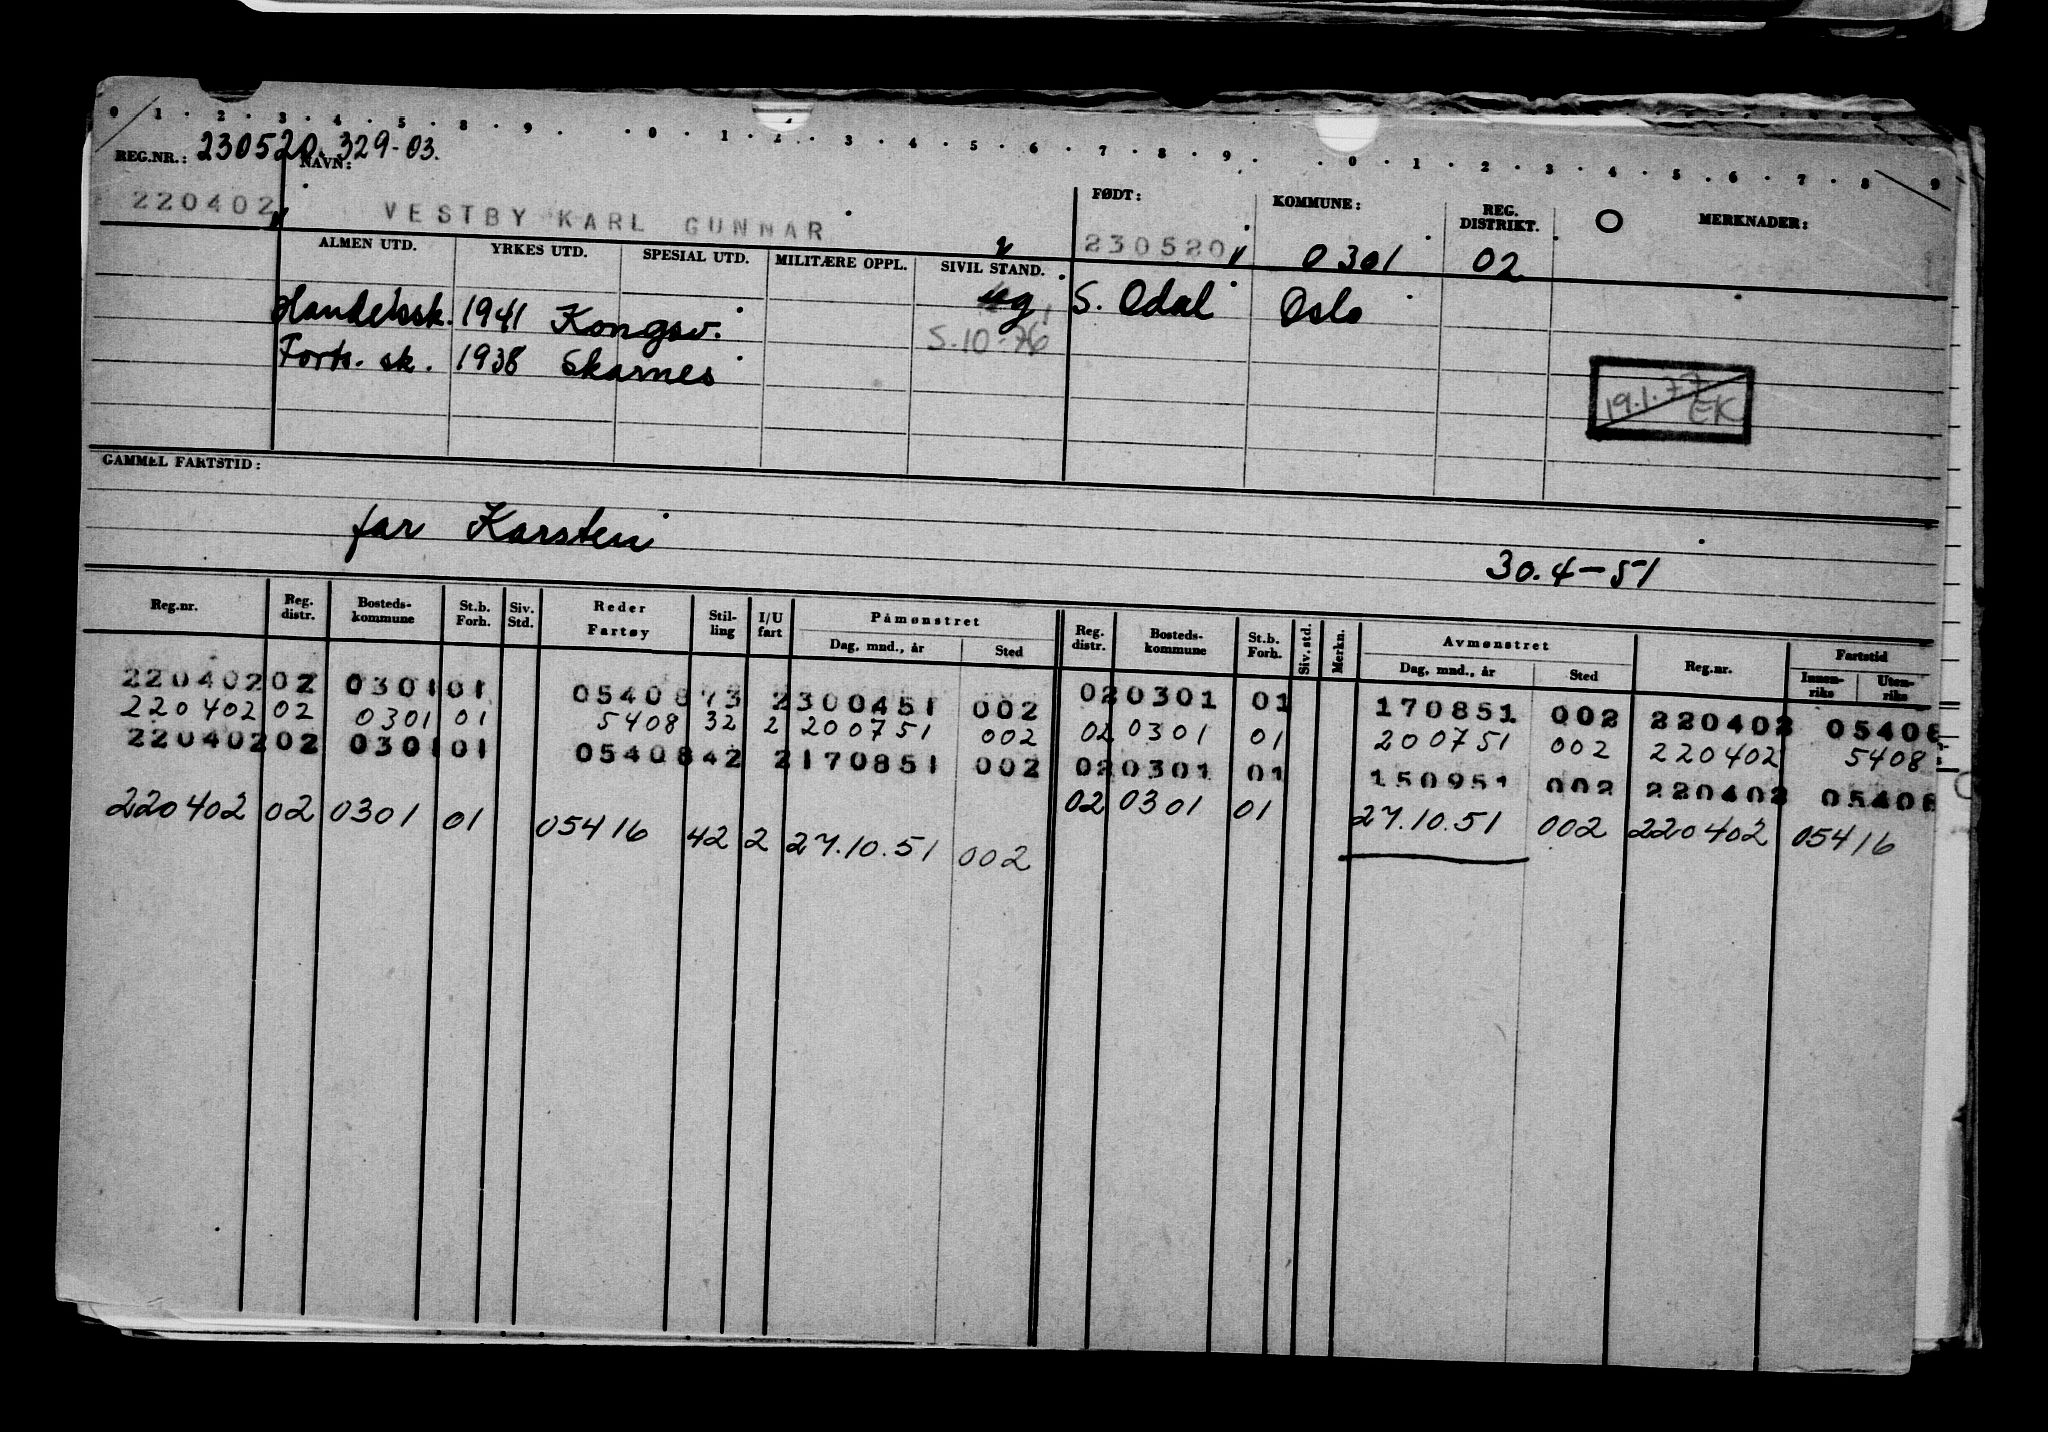 0 1 2 3 4 5 8 9 0 1 2 3 4 5 6 7 8 9 0 1 2 3 4 5 6 7 8 9
REG.NR.: 230520.329-03. NAVN: FØDT: KOMMUNE: REG. DISTRIKT. O MERKNADER:
220402 VESTBY KARL GUNNAR 230520 0301 02
ALMEN UTD. YRKES UTD. SPESIAL UTD. MILITÆRE OPPL. SIVIL STAND.
Handelssk. 1941 Kongsv. ug. S. Odal Oslo
Forts. sk. 1938 Skarnes S.10-76
19.1.77 EK
GAMMEL FARTSTID:
far Karsten 30.4-51
Reg.nr. Reg. distr. Bosteds-kommune St.b. Forh. Siv. Std. Reder Fartøy Stil-ling I/U fart Påmønstret Dag, mnd., år Sted Reg. distr. Bosteds-kommune St.b. Forh. Siv. std. Merkn. Avmønstret Dag, mnd., år Sted Reg.nr. Fartstid Innen-riks Uten-riks
220402 02 0301 01 05408 13 2 300451 002 02 0301 01 170851 002 220402 05408
220402 02 0301 01 5408 32 2 200751 002 02 0301 01 200751 002 220402 5408
220402 02 0301 01 05408 42 2 170851 002 02 0301 01 150951 002 220402 05408
220402 02 0301 01 05416 42 2 27.10.51 002 02 0301 01 27.10.51 002 220402 05416